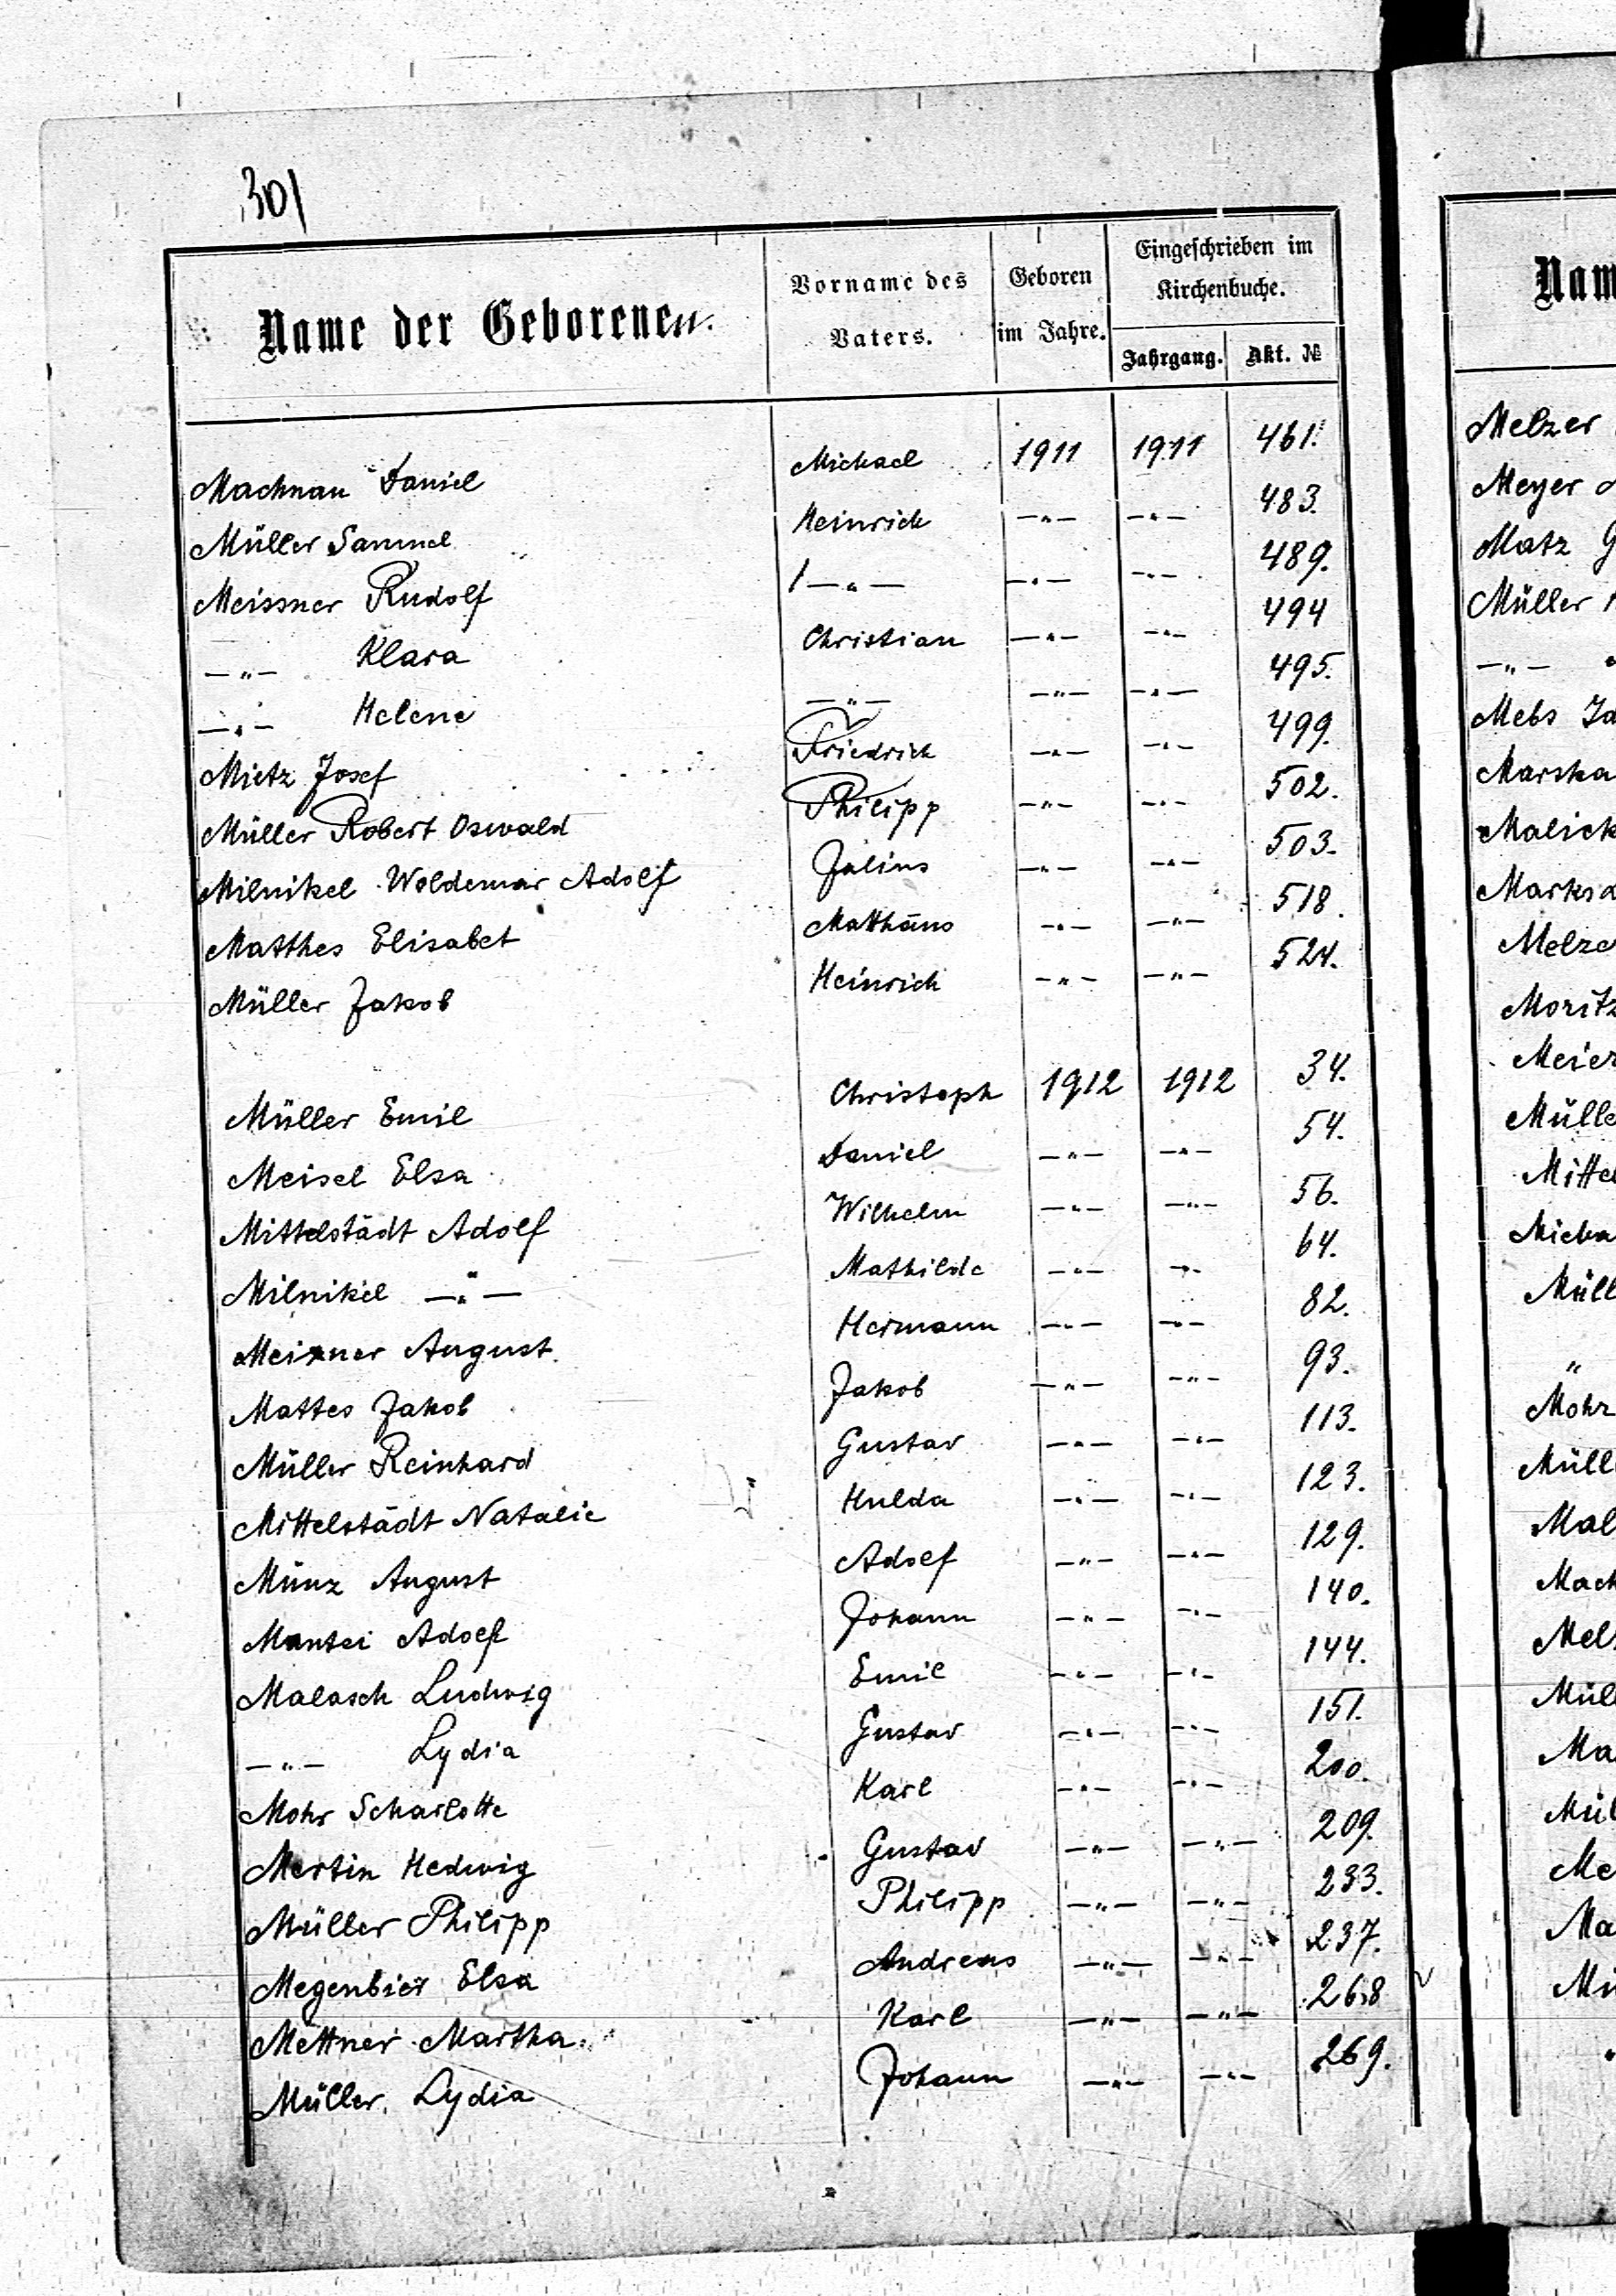 301
Name der Geborenen. Vorname des Vaters. Geboren im Jahre. Eingeschrieben im Kirchenbuche.
Jahrgang. Akt. №
Machnau Daniel Michael 1911 1911 461.
Müller Samuel Heinrich —"— —"— 483.
Meissner Rudolf /—"— —"— —"— 489.
—"— Klara Christian —"— —"— 494
—"— Helene —"— —"— —"— 495.
Mietz Josef Friedrich —"— —"— 499.
Müller Robert Oswald Philipp —"— —"— 502.
Milnikel Woldemar Adolf Julius —"— —"— 503.
Matthes Elisabet Matthäus —"— —"— 518.
Müller Jakob Heinrich —"— —"— 524.
Müller Emil Christoph 1912 1912 34.
Meisel Elsa Daniel —"— —"— 54.
Mittelstädt Adolf Wilhelm —"— —"— 56.
Milnikel —"— Mathilde —"— —"— 64.
Meixner August Hermann —"— —"— 82.
Mattes Jakob Jakob —"— —"— 93.
Müller Reinhard Gustav —"— —"— 113.
Mittelstädt Natalie Hulda —"— —"— 123.
Münz August Adolf —"— —"— 129.
Mantei Adolf Johann —"— —"— 140.
Malasch Ludwig Emil —"— —"— 144.
—"— Lydia Gustav —"— —"— 151.
Mohr Scharlotte Karl —"— —"— 200.
Mertin Hedwig Gustav —"— —"— 209.
Müller Philipp Philipp —"— —"— 233.
Megenbier Elsa Andreas —"— —"— 237.
Mettner Martha Karl —"— —"— 268
Müller Lydia Johann —"— —"— 269.
Nam
Melzer
Meyer
Matz G
Müller
—"—
Mebs Ja
Marska
Malick
Marks
Melze
Moritz
Meier
Mülle
Mittel
Micha
Müll
"
Mohr
Müll
Mal
Mach
Melz
Müll
Ma
Mül
Me
Ma
Mü